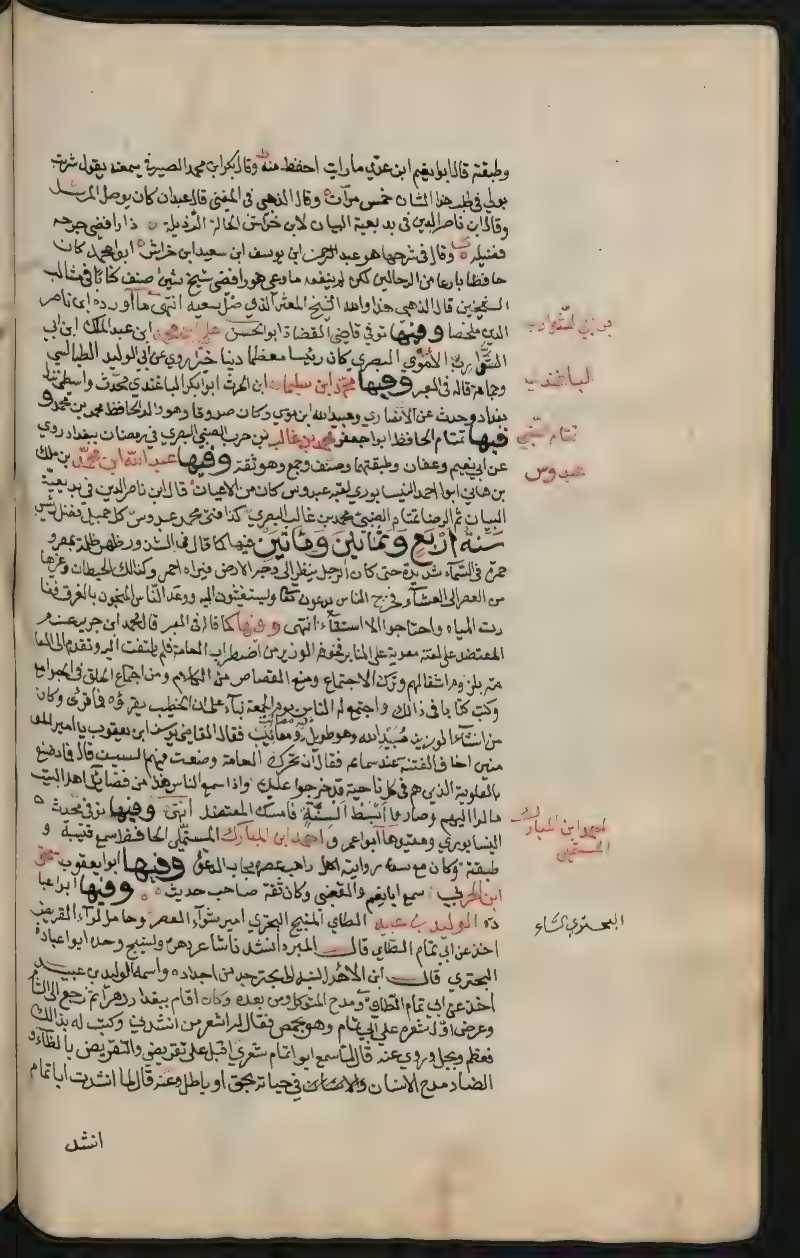 وطبقته قال ابو نعيم ابن عدي ما رايت احفظ منه وقال بكر ابن محمد الصيرفي سمعته يقول شربت
بولي في طلب هذا الشان خمس مرات وقال الذهبي في المغني قال عبدان كان يوصل المرسل
وقال ابن ناصر الدين في بديعية البيان لابن خراش الحالة الرذيلة ذا رافضي جرحه
فضيله وقال في شرحها هو عبد الرحمن ابن يوسف ابن سعيد ابن خراش ابو محمد كان
حافظا بارعا من الرحالين لكن لم ينفعه ما وعى هو رافضي شيخ شين صنف كتابا في مثالب
الشيخين قال الذهبي هذا والله الشيخ المعثر الذي ضل سعيه انتهى ما اورده ابن ناصر
الدين ملخصا وفيها توفي قاضي القضاة ابو الحسن علي ابن محمد ابن عبد الملك ابن ابي
الشوارب الأموي البصري كان رئيسا معظما دينا خيرا روي عن ابي الوليد الطيالسي
وجماعة قاله في العبر وفيها محمد ابن سليمان ابن الحرث ابو بكر الباغندي محدث واسطي نزل
بغداد وحدث عن الانصاري وعبيد الله ابن موسى وكان صدوقا وهو والد الحافظ محمد بن محمد و
فيها تمتام الحافظ ابو جعفر محمد بن غالب بن حرب الضبي البصري في رمضان ببغداد روي
عن ابي نعيم وعفان وطبقتهما وصنف وجمع وهو ثقة وفيها عبد الله ابن محمد بن ملك
بن هاني ابو احمد النيسابوري لقبه عبدوس كان من الاعيان قال ابن ناصر الدين في بديعية
البيان ثم الرضا تمتام الضبي محمد بن غالب البصري كذا فتى محمد عبدوس كل جميل بفضل
سنة اربع وثمانين ومائتين فيها كما قال في الشذور ظهر ظلمة بمصر و
حمرة في السماء شديدة حتى كان الرجل ينظر الى وجه الارض فيراه احمر وكذلك الحيطان وغيرها
من العصر الى العشاء وخرج الناس يدعون الله ويستغيثون اليه ووعد الناس المنجمون بالغرق فغا
رت المياه واحتاجوا الى الاستقاء انتهى وفيها كما قال في العبر قال محمد ابن جرير عزم
المعتضد على لعنة معوية على المنابر فخوفه الوزير من اضطراب العامة فلم يلتفت اليه وتقدم الى العا
مة بلزوم اشغالهم وترك الاجتماع ومنع القصاص من الكلام ومن اجتماع الخلق في الجوامع
وكتب كتابا في ذلك واجتمع له الناس يوم الجمعة بناء على ان الخطيب يقرؤه فما قرئ وكان
من انشاء الوزير عبيد الله وهو طويل فيه مصايب ومعايب فقال القاضي يوسف ابن يعقوب يا امير المو
منين اخاف الفتنة عند سماعه فقال ان تحركت العامة وضعت فيهم السيف قال فما تصنع
بالعلوية الذين هم في كل ناحية قد خرجوا عليك واذا سمع الناس هذا من فضائل اهل البيت
مالوا اليهم وصاروا ابسط السنة فامسك المعتضد انتهى وفيها توفي محدث
النيسابوري ومفيدها ابو عمرو احمد ابن المبارك المستملي الحافظ سمع قتيبة و
طبقته وكان مع سعة روايته راهب عصره مجاب الدعوة وفيها ابو يعقوب اسحق
ابن الحربي سمع ابا نعيم والقعنبي وكان ثقة صاحب حديث وفيها ابو عبا
دة الوليد بن عبيد الطائي المنبجي البحتري امير شعراء العصر وحامل لواء القريض
اخذ عن ابي تمام الطائي قال المبرد انشدنا شاعر دهره ونسيج وحده ابو عبادة
البحتري قال ابن الاهدل نسبه لطي بحتر جد من اجداده واسمه الوليد بن عبيد
اخذ عن ابي تمام الطائي ومدح المتوكل ومن بعده وكان اقام ببغداد دهرا ثم رجع الى الشام
وعرض اول شعره على ابي تمام وهو بحمص فقال له اشعر من انشدني وكتب له بذلك
فعظم وبجل وروي عنه قال لما سمع ابو تمام شعري اقبل على تقريضي والتقريض بالظاء و
الضاد مدح الانسان والانسان في حياته بحق او باطل وعنه قال لما انشدت ابا تمام
انشد
بن ابي الشوارب
الباغندي
تمتام الضبي
عبدوس
احمد ابن المبارك
المستملي
البحتري الشاعر